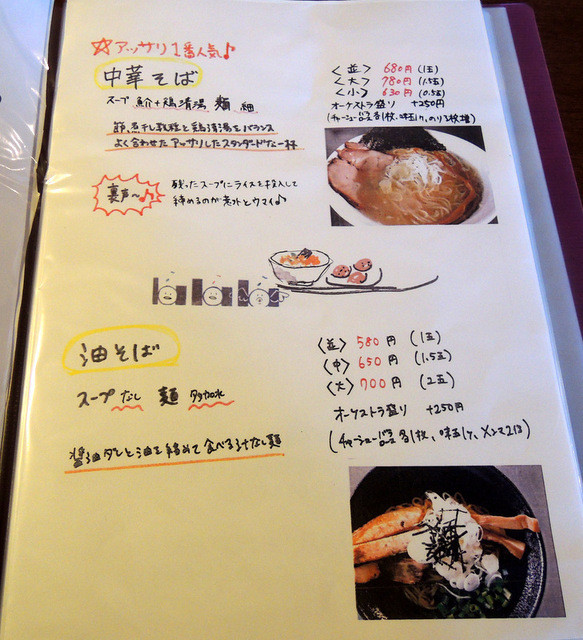 ☆アッサリ1番人気♪
中華そば
スープ 魚介+鶏清湯 麺 細
節、煮干し数種と鶏清湯をバランス
よく合わせたアッサリしたスタンダードな一杯
裏声〜♪
残ったスープにライスを投入して
締めるのが意外とウマイ♪
〈並〉 680円 (1玉)
〈大〉 780円 (1.5玉)
〈小〉 630円 (0.5玉)
オーケストラ盛り +250円
(チャーシューバラロース各1枚、味玉1ヶ、のり3枚増)
油そば
スープ なし 麺 多加水
醤油ダレと油を絡めて食べる汁なし麺
〈並〉 580円 (1玉)
〈中〉 650円 (1.5玉)
〈大〉 700円 (2玉)
オーケストラ盛り +250円
(チャーシューバラロース各1枚、味玉1ヶ、メンマ2倍)